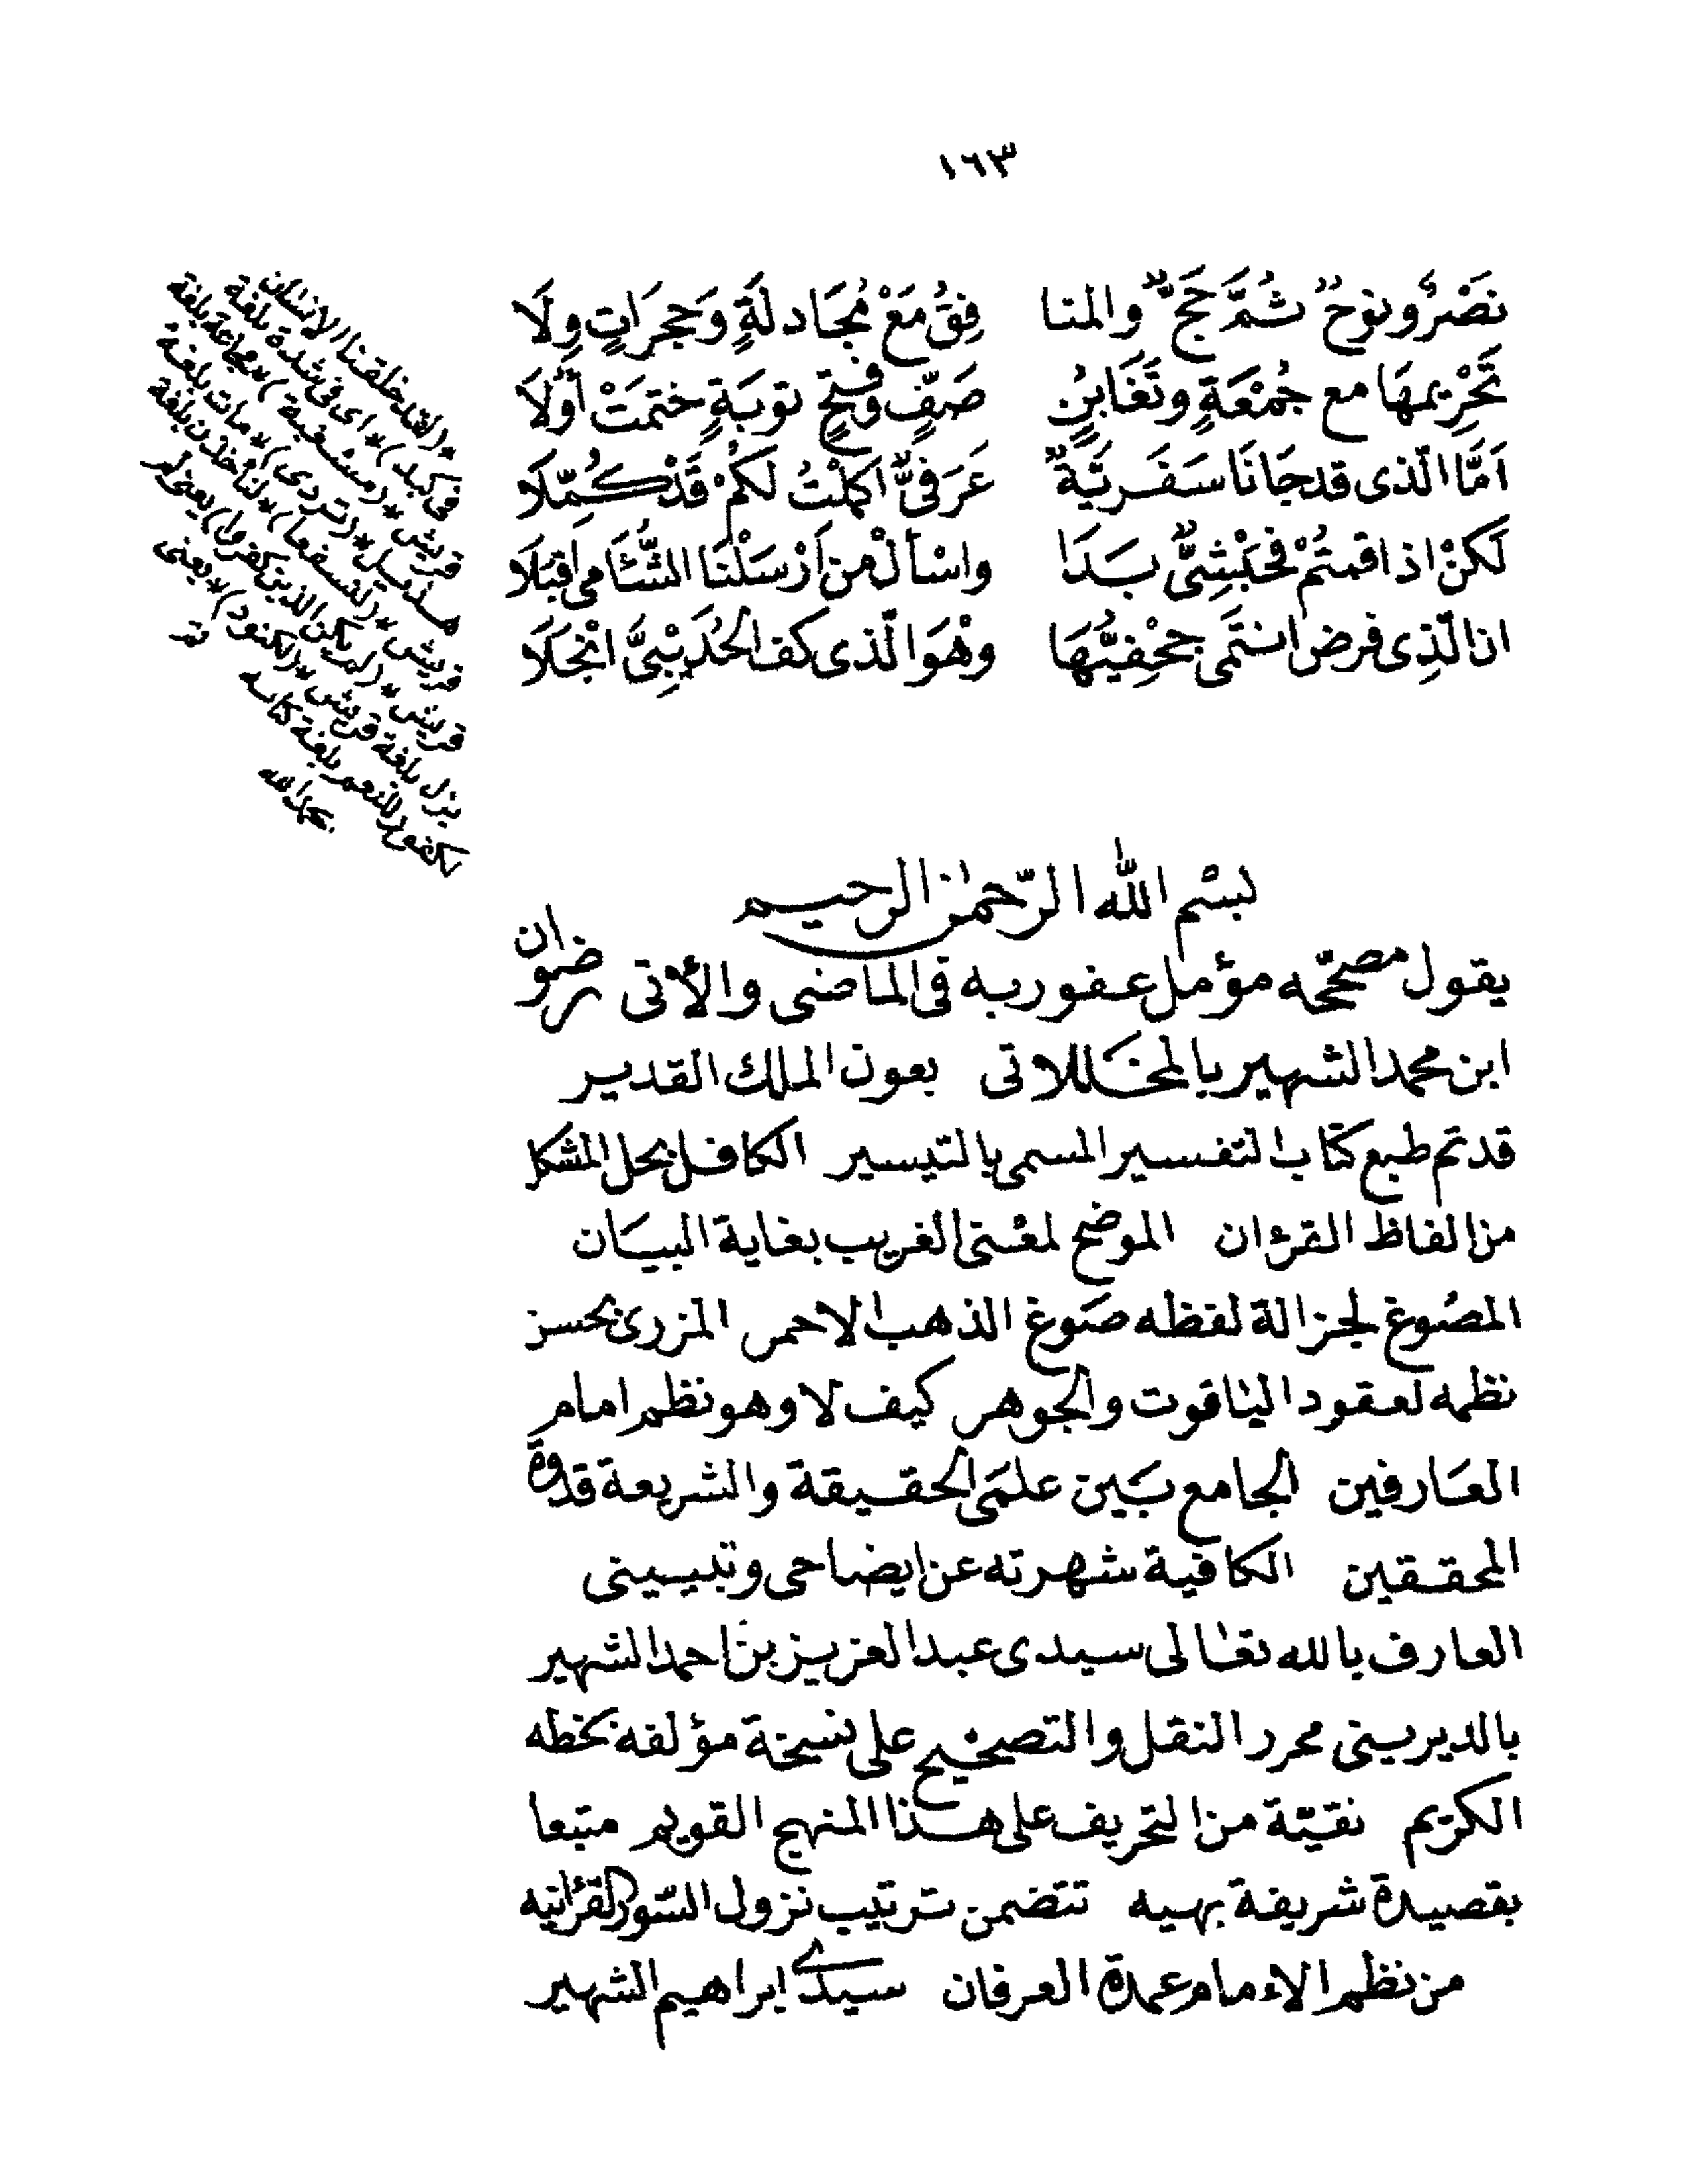 ١٦٣
نَصْرٌ ونوحٌ ثُمَّ حَجٌّ والمنا فِقُ مَعْ مُجَادلَةٍ وَحجرَاتٍ وِلَا
تَحْرِيمهَا مع جُمْعَةٍ وتَغَابُنٍ صَفٍّ وفتحٍ توبَةٍ ختمَتْ أُولَا
اَمَّا الّذى قد جَانَا سَفَرِيَّةٌ عَرَفىٌّ اكملْتُ لَكُمْ قَدْ كُمِّلَا
لَكنْ اذا قمتُمْ فحَبْشِىٌّ بَدَا واسْأَلْ من اَرْسَلْنَا الشَّئَامى اَقبَلَا
ان الّذِى فرض انتَمى جحْفِيُّهَا وهْوَ الّذى كف الحُدَيْبِىَّ انْجَلَا
*(لقد خلقنا الانسان
فى كبد)* اى فى شدة بلغة
قريش *(مسغبة)* مجاعة بلغة
هذيل *(تردى)* مات بلغة
قريش *(لنسفعا)* لنأخذن بلغة
قريش *(لم يكن الذين كفروا) يعنى لم
يزل بلغة قريش *(لكنود)* يعنى
لكفور للنعم بلغة كنانه
بحمد الله
بسْم الله الرّحمٰن الرحيم
يقول مصحّحه مؤمل عفو ربه فى الماضى والأتى رضوان
ابن محمد الشهير بالمخَللاتى بعون الملك القدير
قد تم طبع كتاب التفسير المسمى بالتيسير الكافل بحل المشكل
من الفاظ القرءان الموضح لمعْنى الغريب بغاية البيَان
المصُوغ لجزالة لفظه صَوغ الذهب الاحمر المزرئ بحسن
نظمه لعقود الياقوت والجوهر كيف لا وهو نظم امام
العَارفين الجامع بَين علمَى الحقيقة والشريعة قدوة
المحققين الكافية شهرته عن ايضاحى وتبيينى
العارف بالله تعَالى سيدى عبد العزيز بن احمد الشهير
بالديرينى محرر النقل والتصحيح على نسخة مؤلفه بخطه
الكريم نقيّة من التحريف على هذا المنهج القويم متبعا
بقصيدة شريفة بهيه تتضمن ترتيب نزول السّور القرءانيه
من نظم الاءمام عمدة العرفان سيدى ابراهيم الشهير